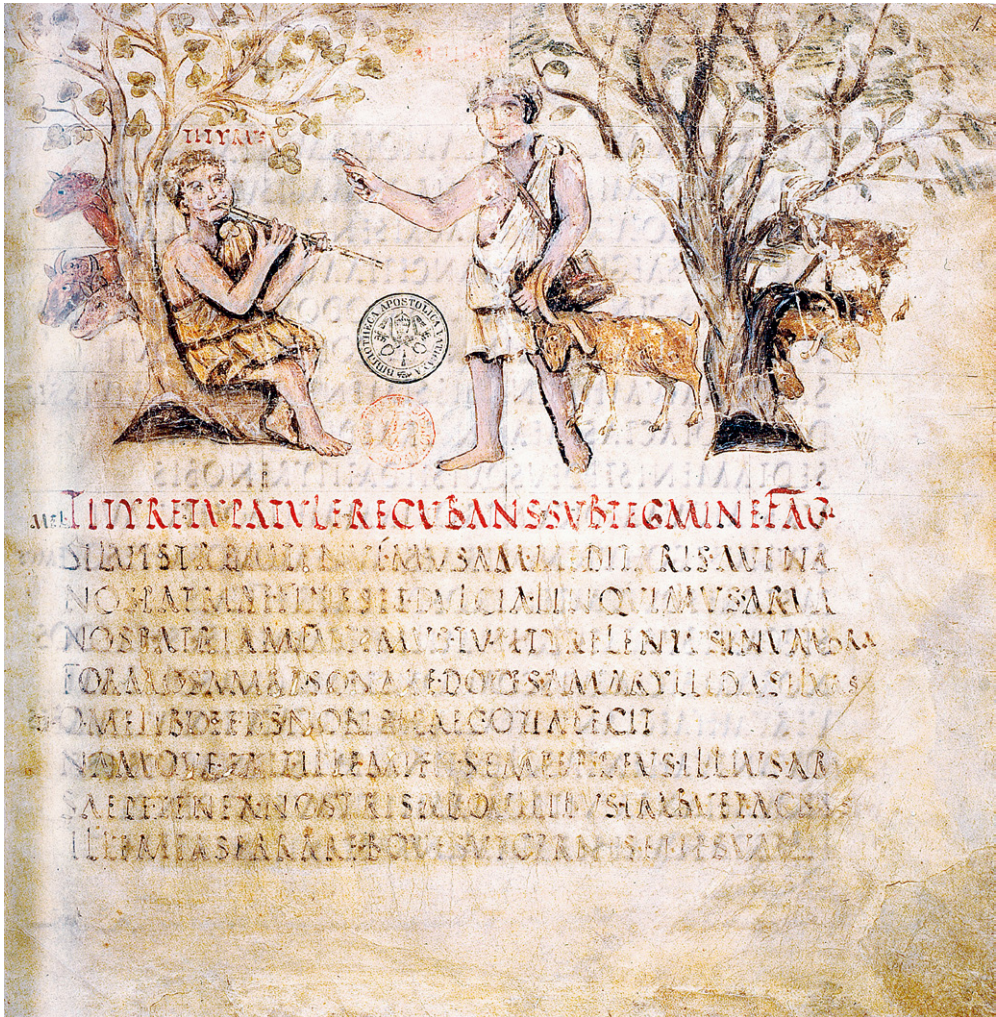 TITYRVS
BIBLIOTHECA APOSTOLICA VATICANA
MEL TITYRE TV PATVLE RECVBANS SVB TEGMINE FAG·
SILVESTREM TENVEM MVSAM MEDITARIS AVENA
NOS PATRIAE FINES ET DVLCIA LINQVIMVS ARVA
NOS PATRIAM FVGIMVS TV TITYRE LENTVS IN VMBRA
FORMOSAM RESONARE DOCES AMARYLLIDA SILVAS
O MELIBOEE DEVS NOBIS HAEC OTIA FECIT
NAMQVE ERIT ILLE MIHI SEMPER DEVS ILLIVS AR
SAEPE TENER NOSTRIS AB OVILIBVS
ILLE MEAS ERRARE BOVES VT CERNIS ET IPSVM